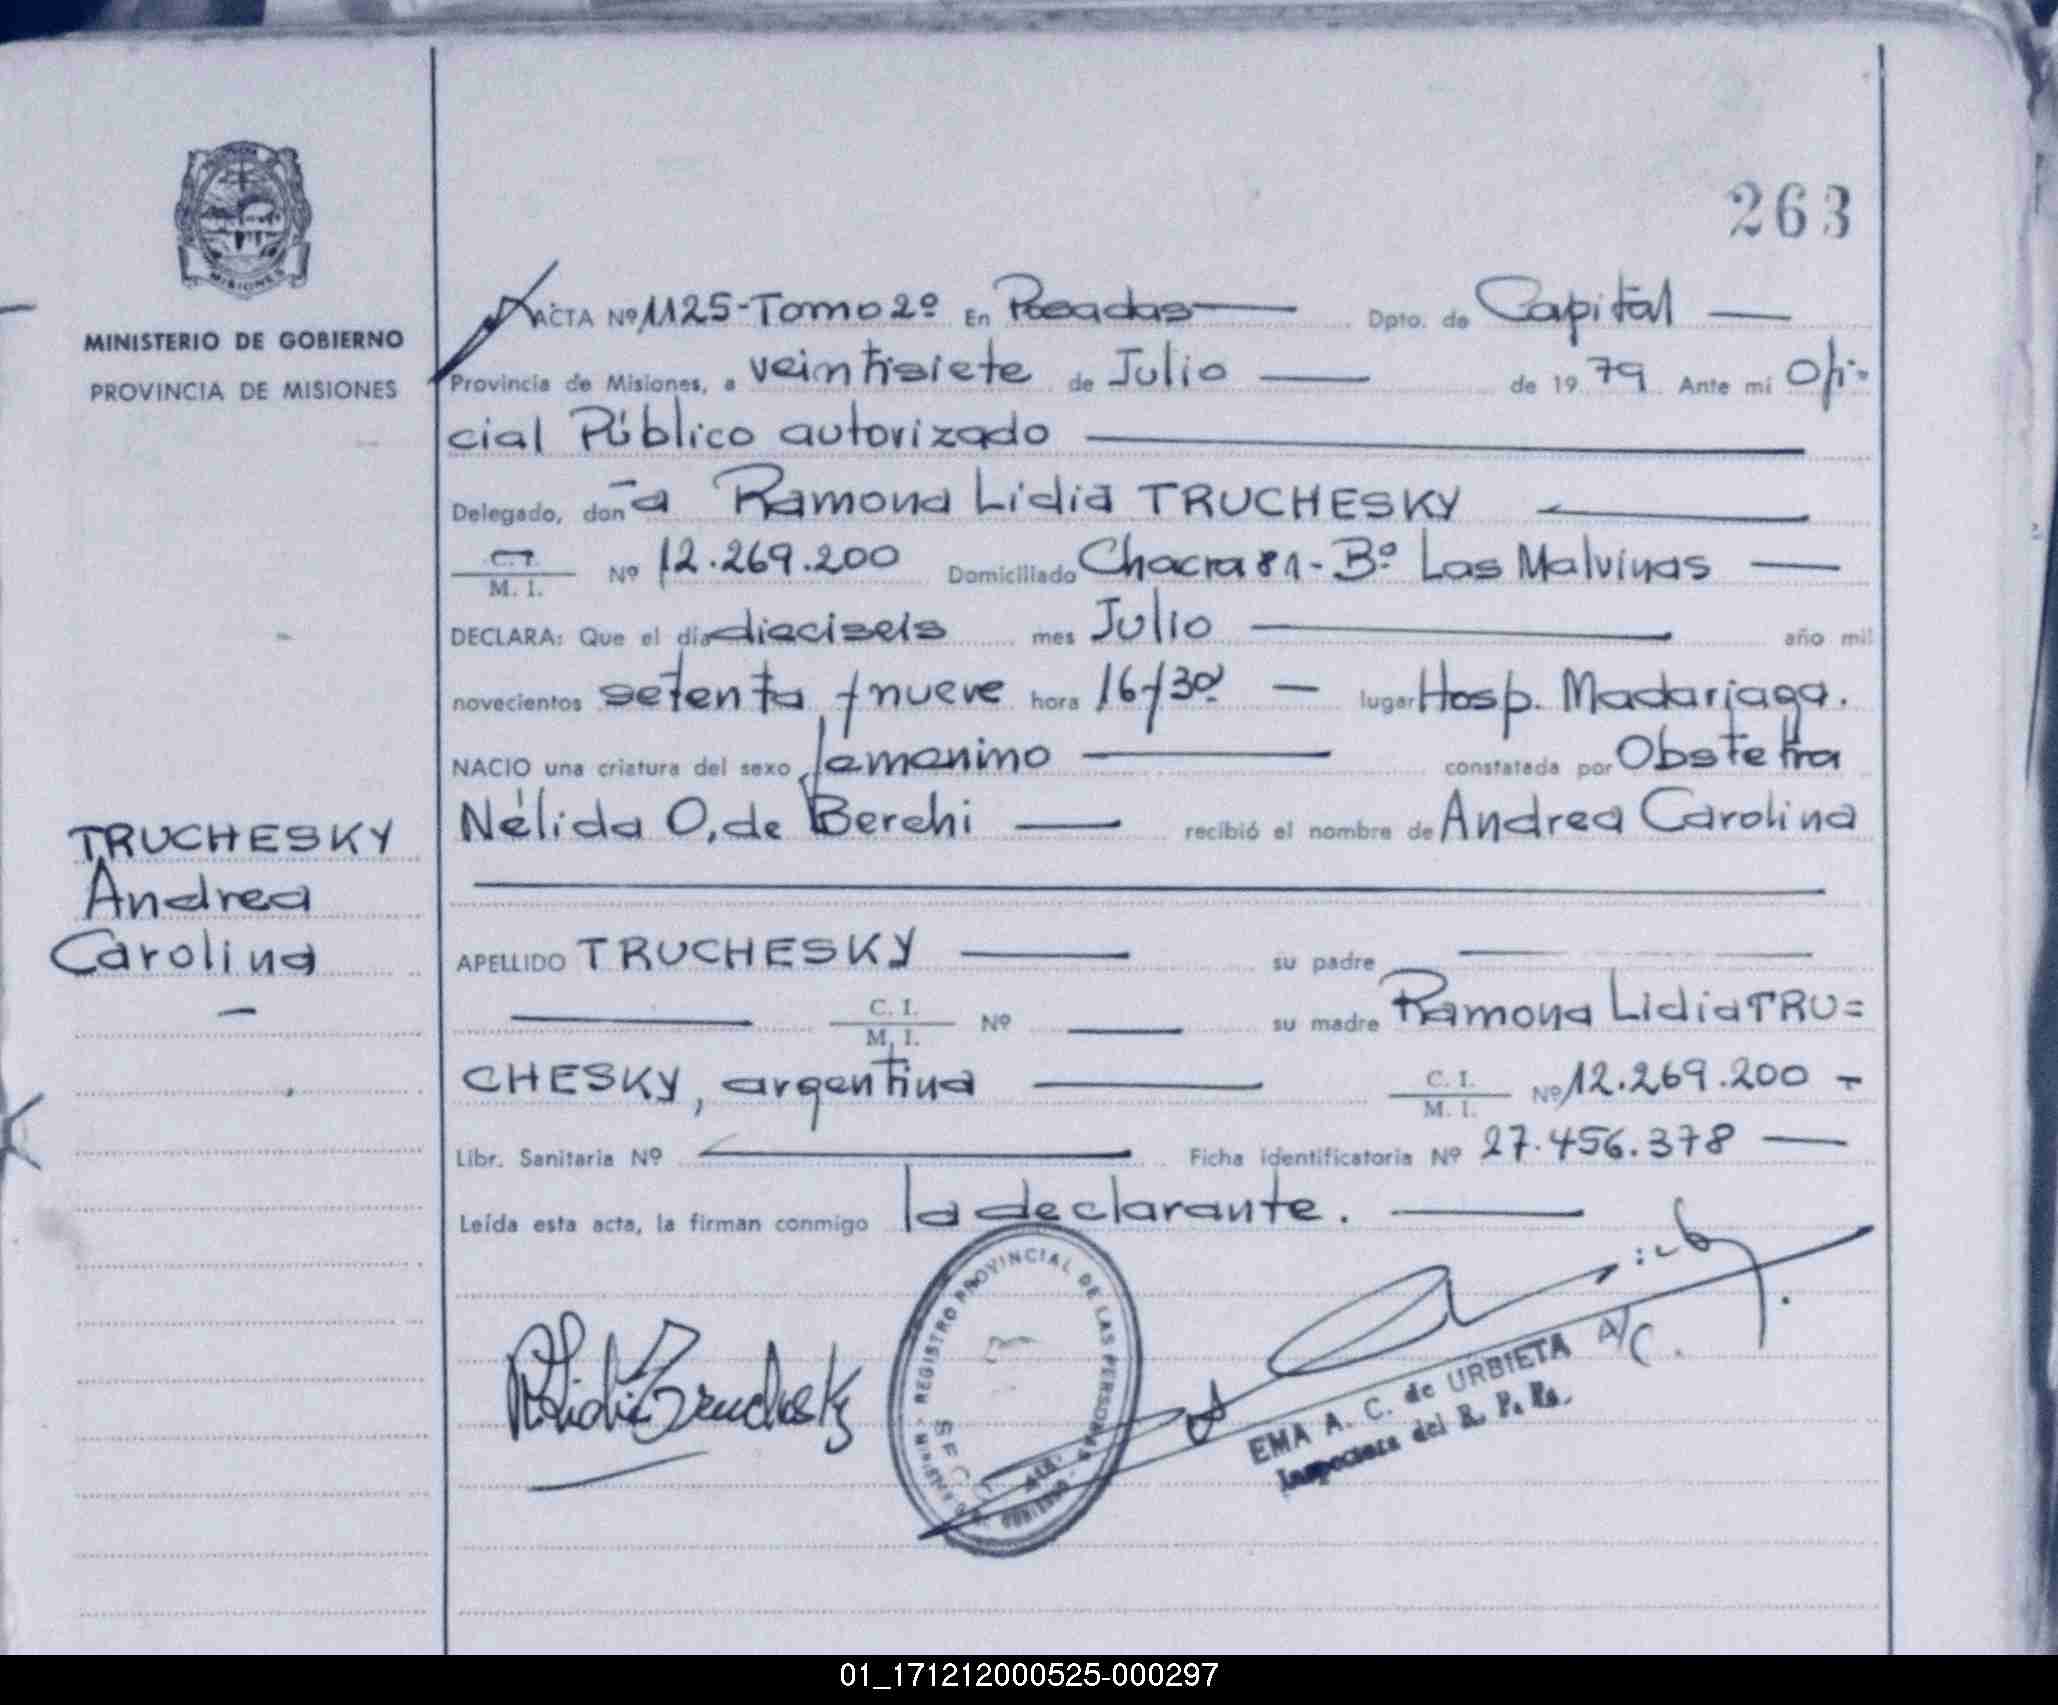 263
MISIONES
MINISTERIO DE GOBIERNO
PROVINCIA DE MISIONES
TRUCHESKY
Andrea
Carolina
ACTA Nº 1125-Tomo 2º En Posadas Dpto. de Capital
Provincia de Misiones, a veintisiete de Julio de 1979 Ante mí Ofi=
cial Público autorizado
Delegado, don a Ramona Lidia TRUCHESKY
C. I.
M. I. Nº 12.269.200 Domiciliado Chacra 81 - Bº Las Malvinas
DECLARA: Que el día dieciseis mes Julio año mil
novecientos setenta y nueve hora 16/30 lugar Hosp. Madariaga.
NACIO una criatura del sexo femenino constatada por Obstetra
Nélida O. de Berchi recibió el nombre de Andrea Carolina
APELLIDO TRUCHESKY su padre
C. I.
M. I. Nº su madre Ramona Lidia TRU=
CHESKY, argentina C. I.
M. I. Nº 12.269.200
Libr. Sanitaria Nº Ficha identificatoria Nº 27.456.378
Leída esta acta, la firman conmigo la declarante.
REGISTRO PROVINCIAL DE LAS PERSONAS
R Lidia Truchesky
A/C.
EMA A. C. de URBIETA
Inspectora del R. P. Ps.
01_171212000525-000297